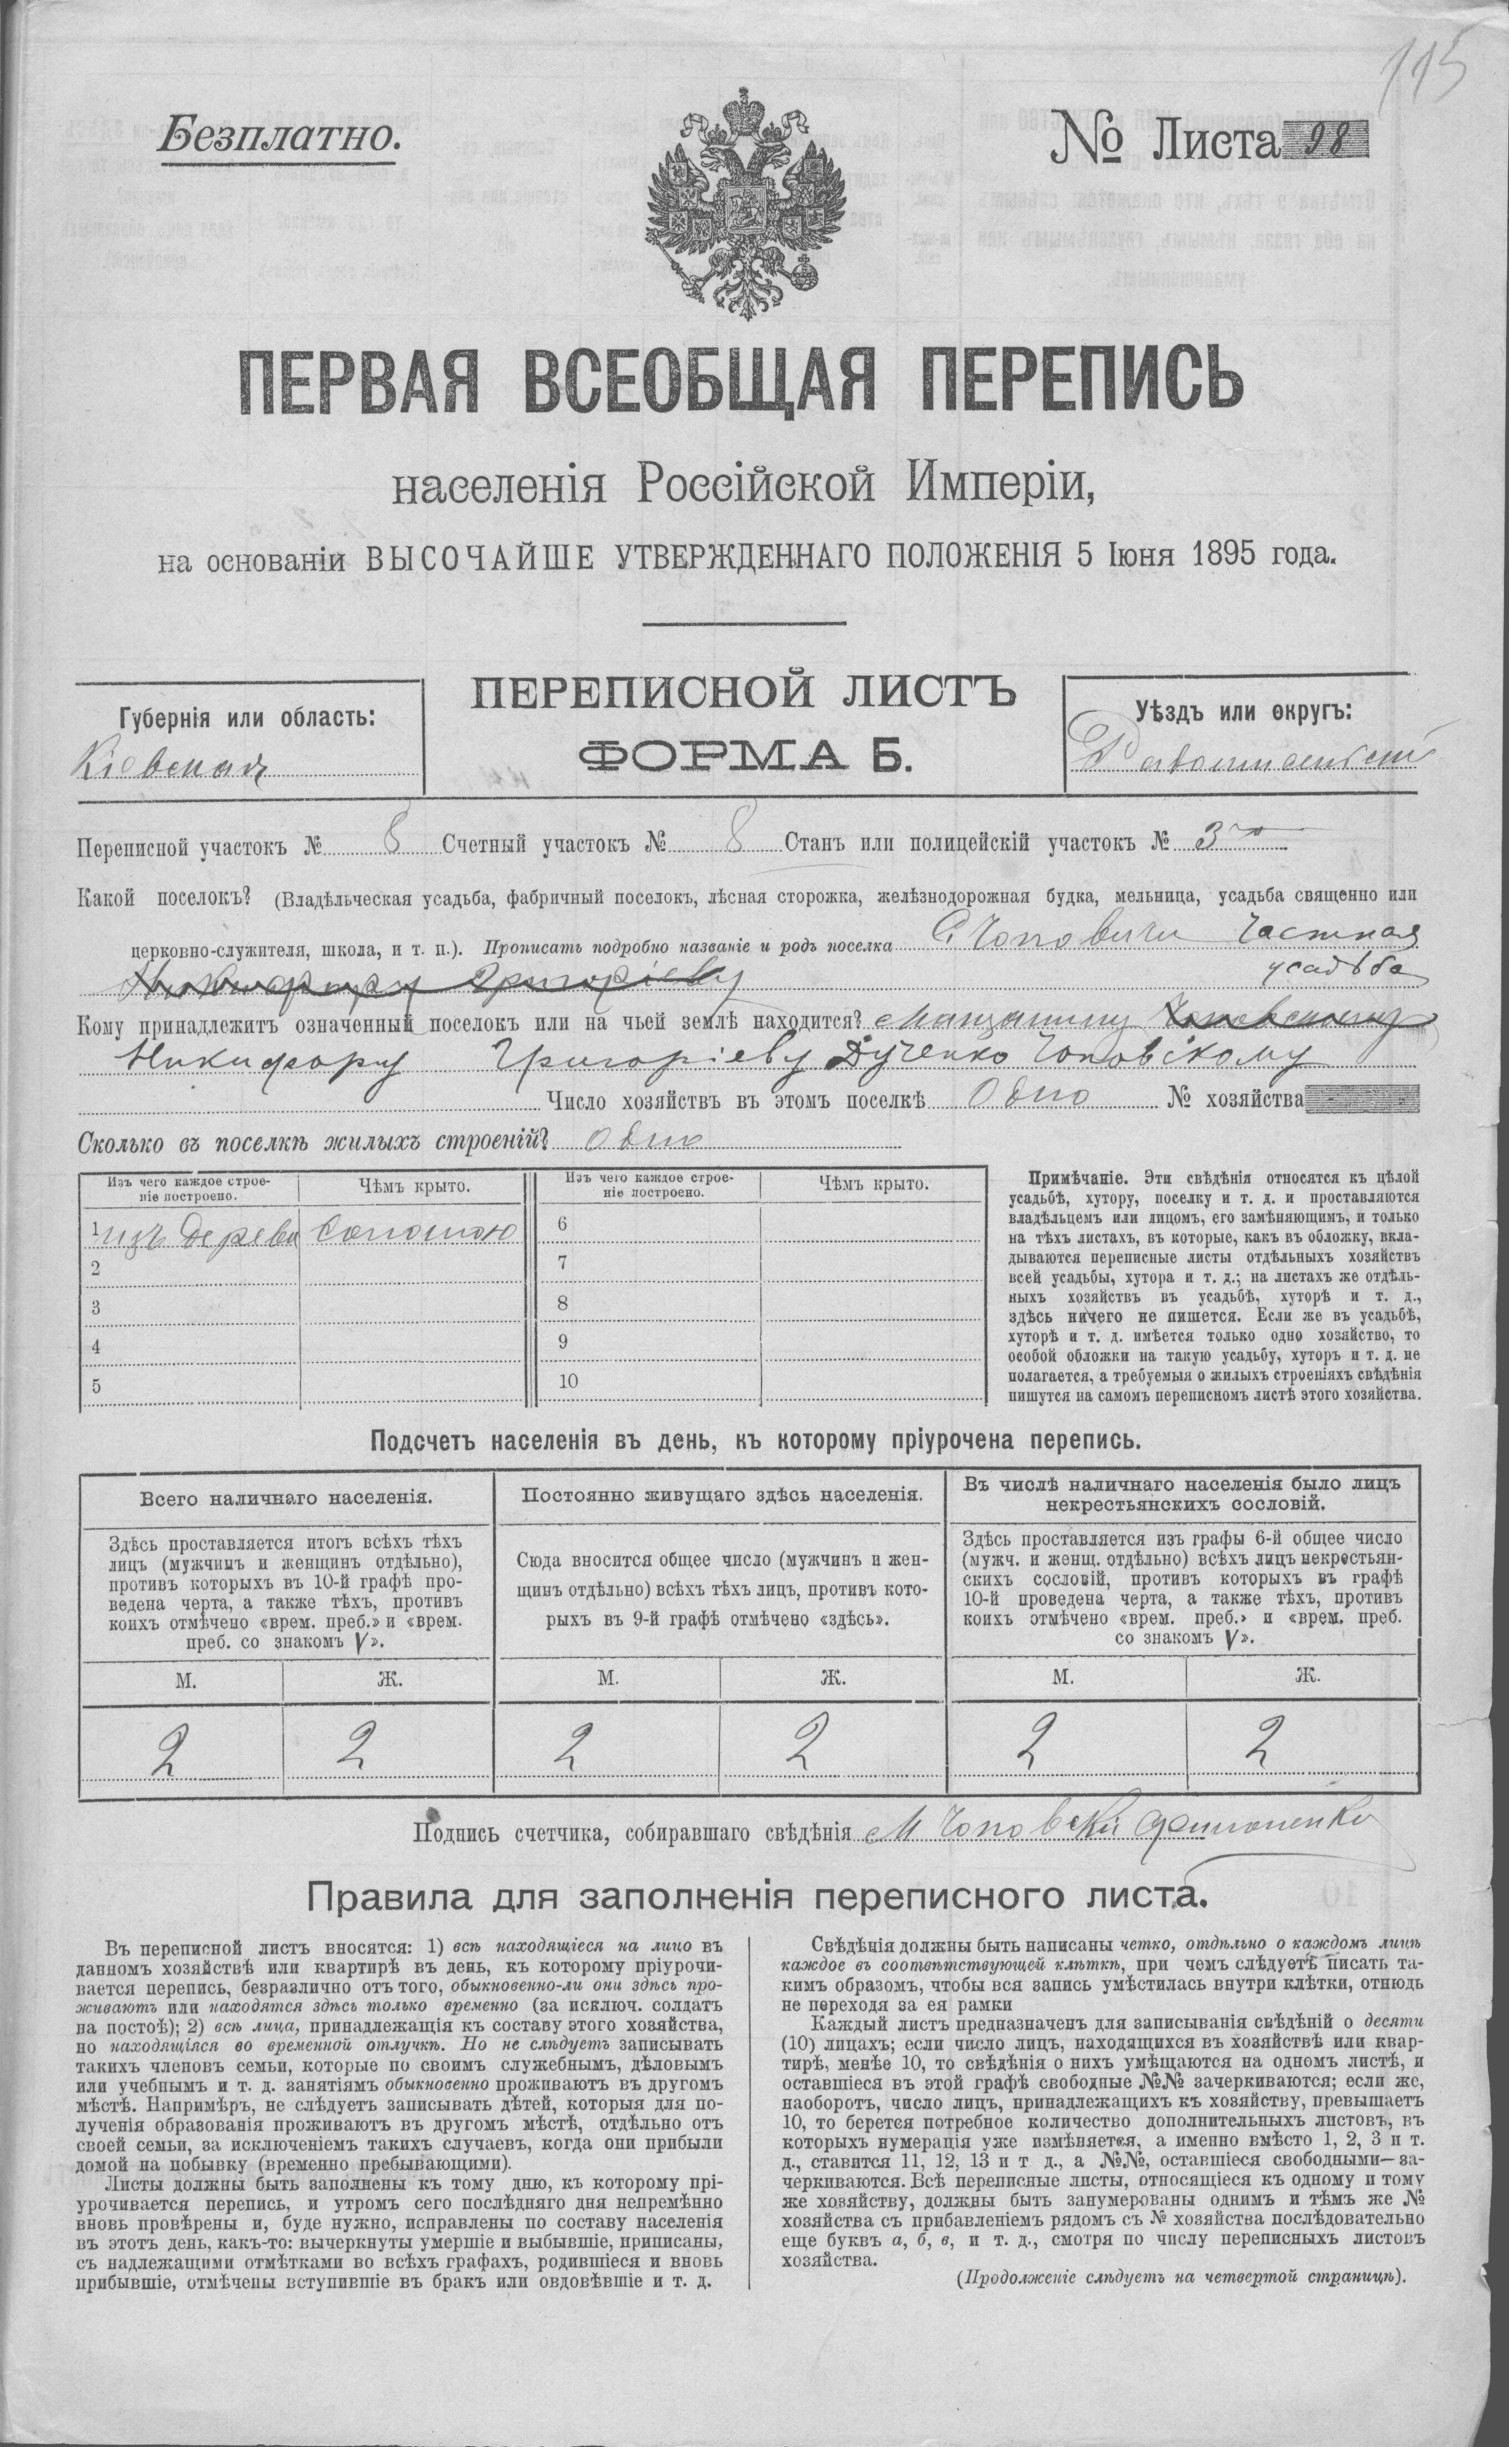 115
Безплатно.
№ Листа 98
ПЕРВАЯ ВСЕОБЩАЯ ПЕРЕПИСЬ
населенія Россійской Имперіи,
на основаніи ВЫСОЧАЙШЕ УТВЕРЖДЕННАГО ПОЛОЖЕНІЯ 5 Іюня 1895 года.
ПЕРЕПИСНОЙ ЛИСТЪ
ФОРМА Б.
Губернія или область:
Кіевская
Уѣздъ или округъ:
Радомысльскій
Переписной участокъ № 8 Счетный участокъ № 8 Станъ или полицейскій участокъ № 3
Какой поселокъ? (Владѣльческая усадьба, фабричный поселокъ, лѣсная сторожка, желѣзнодорожная будка, мельница, усадьба священно или
церковно-служителя, школа, и т. п.). Прописать подробно названіе и родъ поселка С. Чоповичи частная
усадьба
Кому принадлежитъ означенный поселокъ или на чьей землѣ находится? Мащанину
Никифору Григоріеву Дученко Чоповскому
Число хозяйствъ въ этомъ поселкѣ Одно № хозяйства
Сколько въ поселкѣ жилыхъ строеній? одно
Изъ чего каждое строе-
ніе построено.
Чѣмъ крыто.
Изъ чего каждое строе-
ніе построено.
Чѣмъ крыто.
1 изъ дерева соломою 6
2 7
3 8
4 9
5 10
Примѣчаніе. Эти свѣдѣнія относятся къ цѣлой
усадьбѣ, хутору, поселку и т. д. и проставляются
владѣльцемъ или лицомъ, его замѣняющимъ, и только
на тѣхъ листахъ, въ которые, какъ въ обложку, вкла-
дываются переписные листы отдѣльныхъ хозяйствъ
всей усадьбы, хутора и т. д.; на листахъ же отдѣль-
ныхъ хозяйствъ въ усадьбѣ, хуторѣ и т. д.,
здѣсь ничего не пишется. Если же въ усадьбѣ,
хуторѣ и т. д. имѣется только одно хозяйство, то
особой обложки на такую усадьбу, хуторъ и т. д. не
полагается, а требуемыя о жилыхъ строеніяхъ свѣдѣнія
пишутся на самомъ переписномъ листѣ этого хозяйства.
Подсчетъ населенія въ день, къ которому пріурочена перепись.
Всего наличнаго населенія.
Здѣсь проставляется итогъ всѣхъ тѣхъ
лицъ (мужчинъ и женщинъ отдѣльно),
противъ которыхъ въ 10-й графѣ про-
ведена черта, а также тѣхъ, противъ
коихъ отмѣчено «врем. преб.» и «врем.
преб. со знакомъ V».
М. Ж.
2 2
Постоянно живущаго здѣсь населенія.
Сюда вносится общее число (мужчинъ и жен-
щинъ отдѣльно) всѣхъ тѣхъ лицъ, противъ кото-
рыхъ въ 9-й графѣ отмѣчено «здѣсь».
М. Ж.
2 2
Въ числѣ наличнаго населенія было лицъ
некрестьянскихъ сословій.
Здѣсь проставляется изъ графы 6-й общее число
(мужч. и женщ. отдѣльно) всѣхъ лицъ некрестьян-
скихъ сословій, противъ которыхъ въ графѣ
10-й проведена черта, а также тѣхъ, противъ
коихъ отмѣчено «врем. преб.» и «врем. преб.
со знакомъ V».
М. Ж.
2 2
Подпись счетчика, собиравшаго свѣдѣнія М Чоповскій
Правила для заполненія переписного листа.
Въ переписной листъ вносятся: 1) всѣ находящіеся на лицо въ
данномъ хозяйствѣ или квартирѣ въ день, къ которому пріурочи-
вается перепись, безразлично отъ того, обыкновенно-ли они здѣсь про-
живаютъ или находятся здѣсь только временно (за исключ. солдатъ
на постоѣ); 2) всѣ лица, принадлежащія къ составу этого хозяйства,
но находящіяся во временной отлучкѣ. Но не слѣдуетъ записывать
такихъ членовъ семьи, которые по своимъ служебнымъ, дѣловымъ
или учебнымъ и т. д. занятіямъ обыкновенно проживаютъ въ другомъ
мѣстѣ. Напримѣръ, не слѣдуетъ записывать дѣтей, которыя для по-
лученія образованія проживаютъ въ другомъ мѣстѣ, отдѣльно отъ
своей семьи, за исключеніемъ такихъ случаевъ, когда они прибыли
домой на побывку (временно пребывающими).
Листы должны быть заполнены къ тому дню, къ которому прі-
урочивается перепись, и утромъ сего послѣдняго дня непремѣнно
вновь провѣрены и, буде нужно, исправлены по составу населенія
въ этотъ день, какъ-то: вычеркнуты умершіе и выбывшіе, приписаны,
съ надлежащими отмѣтками во всѣхъ графахъ, родившіеся и вновь
прибывшіе, отмѣчены вступившіе въ бракъ или овдовѣвшіе и т. д.
Свѣдѣнія должны быть написаны четко, отдѣльно о каждомъ лицѣ
каждое въ соотвѣтствующей клѣткѣ, при чемъ слѣдуетъ писать та-
кимъ образомъ, чтобы вся запись умѣстилась внутри клѣтки, отнюдь
не переходя за ея рамки
Каждый листъ предназначенъ для записыванія свѣдѣній о десяти
(10) лицахъ; если число лицъ, находящихся въ хозяйствѣ или квар-
тирѣ, менѣе 10, то свѣдѣнія о нихъ умѣщаются на одномъ листѣ, и
оставшіеся въ этой графѣ свободные №№ зачеркиваются; если же,
наоборотъ, число лицъ, принадлежащихъ къ хозяйству, превышаетъ
10, то берется потребное количество дополнительныхъ листовъ, въ
которыхъ нумерація уже измѣняется, а именно вмѣсто 1, 2, 3 и т.
д., ставится 11, 12, 13 и т д., а №№, оставшіеся свободными—за-
черкиваются. Всѣ переписные листы, относящіеся къ одному и тому
же хозяйству, должны быть занумерованы однимъ и тѣмъ же №
хозяйства съ прибавленіемъ рядомъ съ № хозяйства послѣдовательно
еще буквъ а, б, в, и т. д., смотря по числу переписныхъ листовъ
хозяйства.
(Продолженіе слѣдуетъ на четвертой страницѣ).